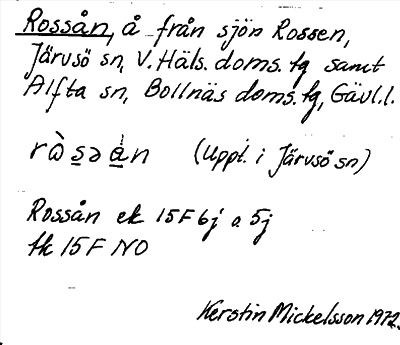 Rossån, å från sjön Rossen,
Järvsö sn, V. Häls. doms. tg samt
Alfta sn, Bollnäs doms. tg, Gävl.l.
(Uppt. i Järvsö sn)
Rossån ek 15F 6j o 5j
tk 15F NO
Kerstin Mickelsson 1972.